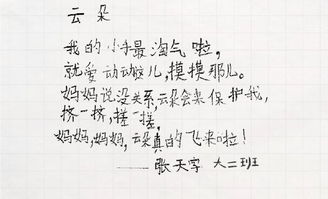 云朵
我的小手最淘气啦,
就爱动动这儿,摸摸那儿。
妈妈说没关系,云朵会来保护我,
挤一挤,搓一搓,
妈妈,妈妈,云朵真的飞来啦!
——张天宇 大二班